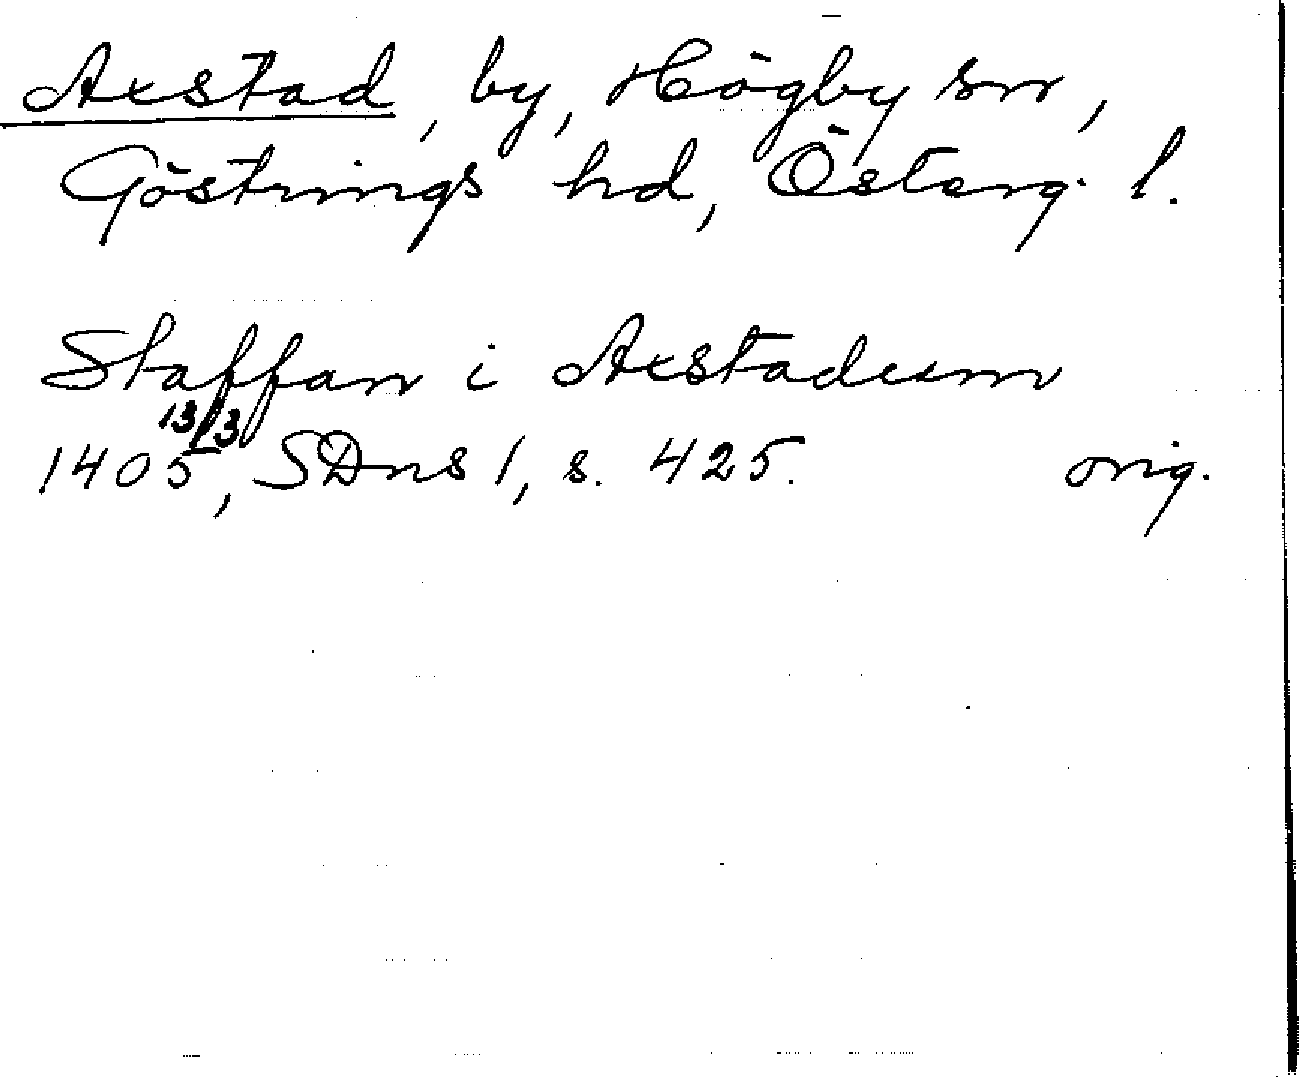 Axstad, by, Högby sn,
Göstrings hd, Österg. l.
Staffan i Axstadum
13/3
1405, SDns 1, s. 425. orig.